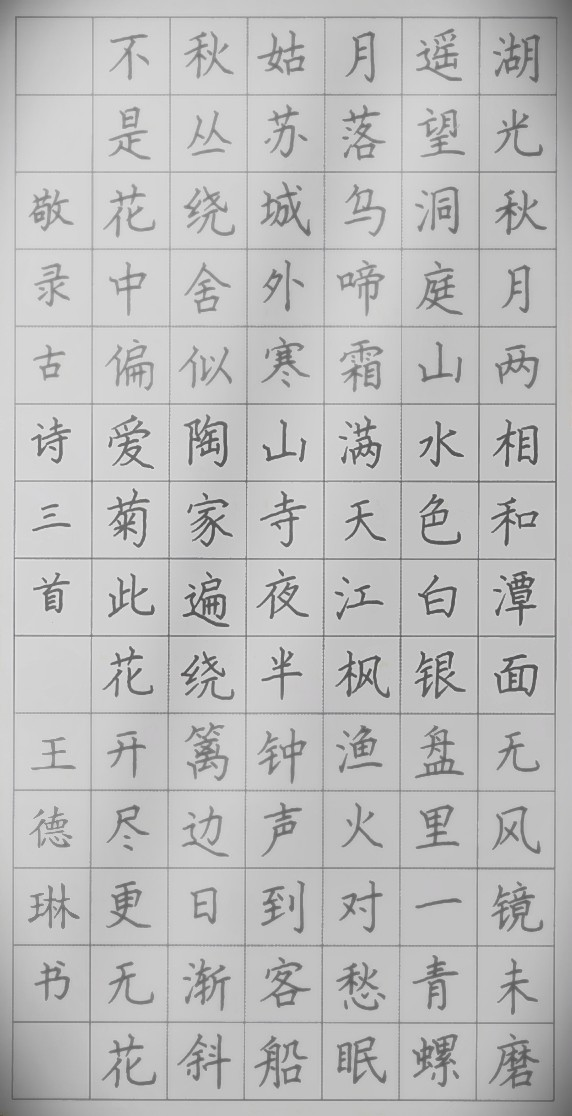 湖光秋月两相和潭面无风镜未磨
遥望洞庭山水色白银盘里一青螺
月落乌啼霜满天江枫渔火对愁眠
姑苏城外寒山寺夜半钟声到客船
秋丛绕舍似陶家遍绕篱边日渐斜
不是花中偏爱菊此花开尽更无花
敬录古诗三首 王德琳书